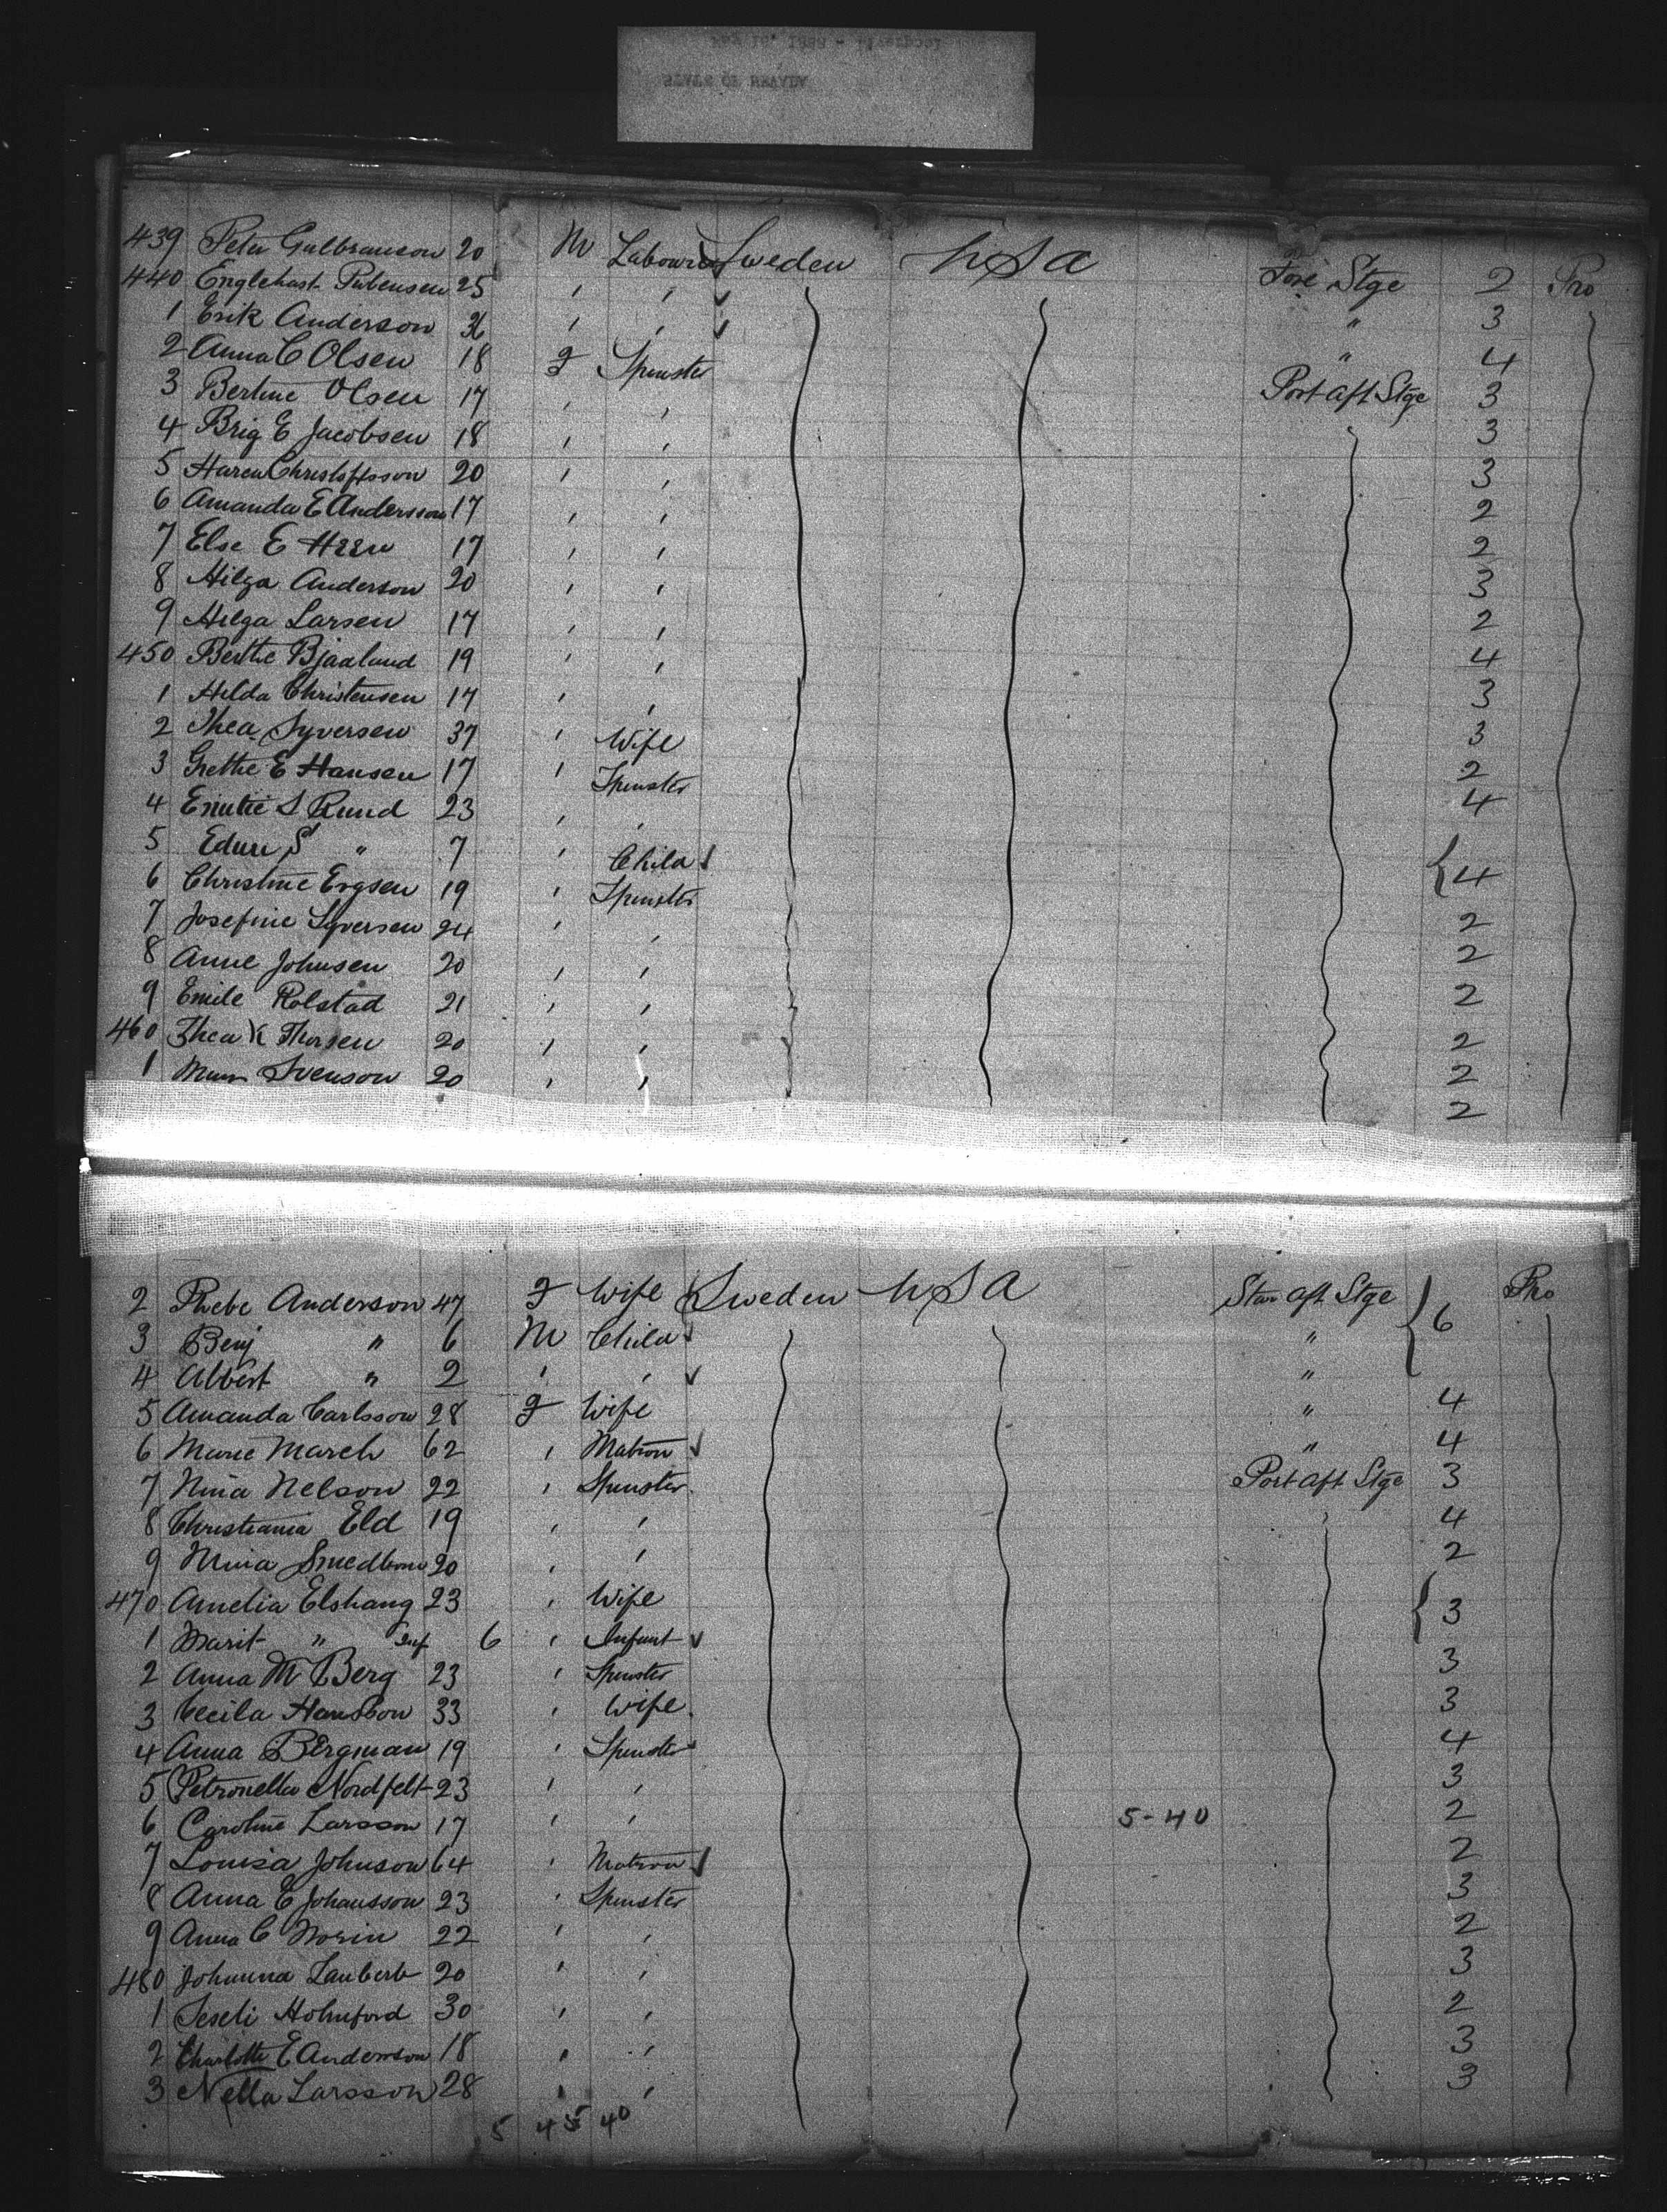 439 Peter Gulbranson 20 M Labourer Sweden USA Fore Stge 2 Pro
440 Englehart Rubensen 25 , , " 3
1 Erik Anderson 36 , , " 4
2 Anna C Olsen 18 F Spinster Port aft Stge 3
3 Bertine Olsen 17 , , 3
4 Brig E Jacobsen 18 , , 3
5 Haren Christoffsson 20 , , 2
6 Amanda E Andersson 17 , , 2
7 Else E 17 , , 3
8 Hilga Anderson 20 , , 2
9 Hilga Larsen 17 , , 4
450 Berthe Bjaaland 19 , , 3
1 Hilda Christensen 17 , , 3
2 Thea Syversen 37 , Wife 2
3 Grethe E Hansen 17 , Spinster 4
4 S Ruud 23 , ,
5 S " 7 , Child 4
6 Christine Evgsen 19 , Spinster 2
7 Josefine Syversen 24 , , 2
8 Anne Johnsen 20 , , 2
9 Emile Rolstad 21 , , 2
460 Thea K Thorsen 20 , , 2
1 Svenson 20 , , 2
2 Phebe Anderson 47 F Wife Sweden USA Star aft Stge 6 Pro
3 Benj " 6 M Child "
4 Albert " 2 , , "
5 Amanda Carlsson 28 F Wife " 4
6 Marie March 62 , Matron " 4
7 Nina Nelson 22 , Spinster Port aft Stge 3
8 Christiania Eld 19 , , 4
9 Mina 20 , , 2
470 Amelia Elshang 23 , Wife 3
1 Marit " Inf 6 , Infant
2 Anna M Berg 23 , Spinster 3
3 Cecila Hansson 33 , Wife 3
4 Anna Bergman 19 , Spinster 4
5 Petronella Nordfelt 23 , , 3
6 Caroline Larsson 17 , , 5-40 2
7 Louisa Johnson 64 , Matron 2
8 Anna E Johansson 23 , Spinster 3
9 Anna C Norin 22 , , 2
480 Johanna Lauberb 20 , , 3
1 Seseli Holmford 30 , , 2
2 Charlotte E Anderson 18 , , 3
3 Nella Larsson 28 , , 3
5 45 40